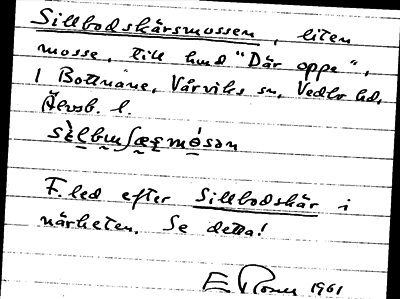 Sillbodskärsmossen, liten
mosse, till hmd "Där oppe",
i Bottnäne, Vårviks sn, Vedbo hd,
Älvsb. l.
F.led efter Sillbodskär i
närheten. Se detta!
1961